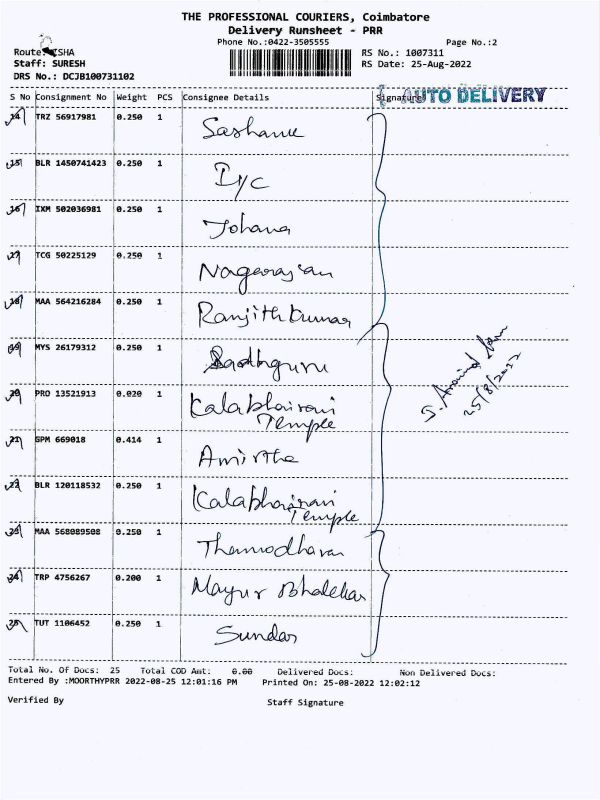 THE PROFESSIONAL COURIERS, Coimbatore
Delivery Runsheet - PRR
Phone No.:0422-3505555 Page No.:2
Route: ISHA RS No.: 1007311
Staff: SURESH RS Date: 25-Aug-2022
DRS No.: DCJB100731102
AUTO DELIVERY
S No Consignment No Weight PCS Consignee Details Signature
14 TRZ 56917981 0.250 1
15 BLR 1450741423 0.250 1 IYC
16 IXM 502036981 0.250 1 Johana
17 TCG 50225129 0.250 1 Nagarajan
18 MAA 564216284 0.250 1 Ranjith kumar
19 MYS 26179312 0.250 1 Sadhguru
20 PRO 13521913 0.020 1 Kalabhairavi
Temple
21 GPM 669018 0.414 1 Amirtha
22 BLR 120118532 0.250 1 Kalabhairavi
Temple
23 MAA 568089508 0.250 1 Thamodharan
24 TRP 4756267 0.200 1 Mayur Bhalekar
25 TUT 1106452 0.250 1 Sundar
S. Aravind
25/8/2022
Total No. Of Docs: 25 Total COD Amt: 0.00 Delivered Docs: Non Delivered Docs:
Entered By :MOORTHYPRR 2022-08-25 12:01:16 PM Printed On: 25-08-2022 12:02:12
Verified By Staff Signature